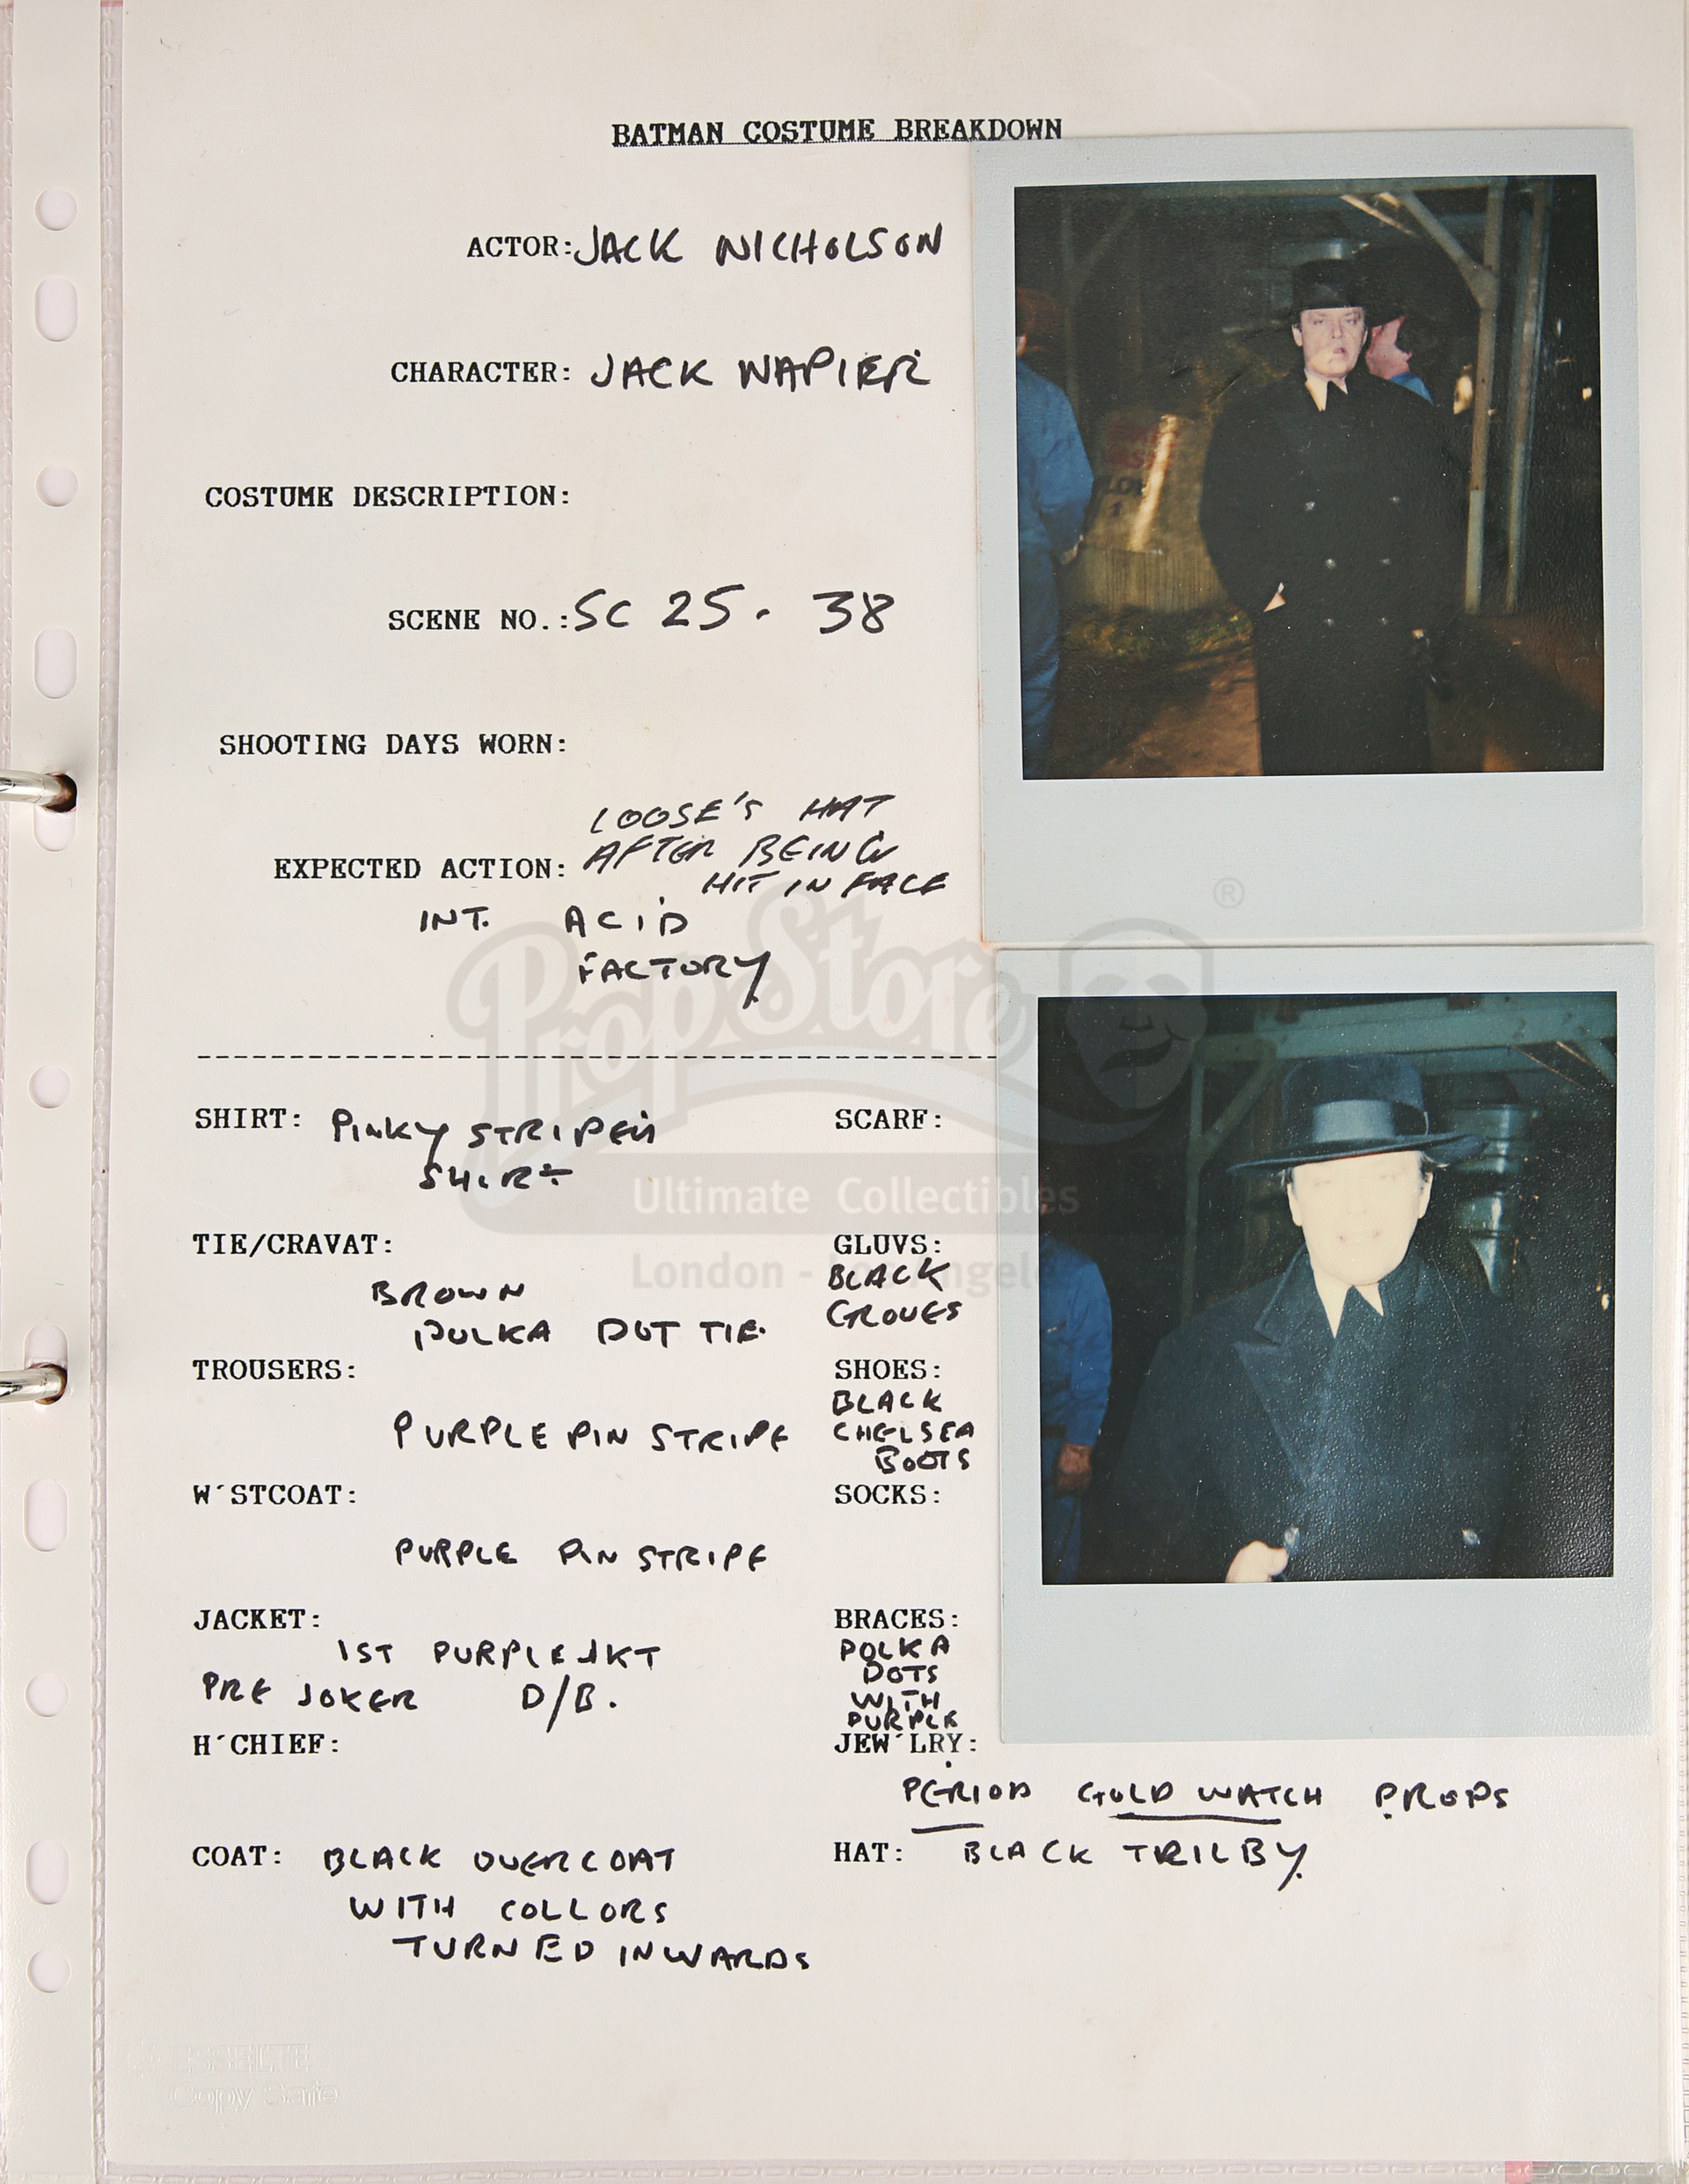 BATMAN COSTUME BREAKDOWN
ACTOR: JACK NICHOLSON
CHARACTER: JACK NAPIER
COSTUME DESCRIPTION:
SCENE NO.: SC 25. 38
SHOOTING DAYS WORN:
LOOSE'S HAT
EXPECTED ACTION: AFTER BEING
HIT IN FACE
INT. ACID
FACTORY
PropStore ®
Ultimate Collectibles
London - Los Angeles
SHIRT: PINKY STRIPED
SHIRT
SCARF:
TIE/CRAVAT:
BROWN
POLKA DOT TIE.
GLUVS:
BLACK
GLOVES
TROUSERS:
PURPLE PIN STRIPE
SHOES:
BLACK
CHELSEA
BOOTS
W´STCOAT:
PURPLE PIN STRIPE
SOCKS:
JACKET:
1ST PURPLE JKT
PRE JOKER D/B.
BRACES:
POLKA
DOTS
WITH
PURPLE
H´CHIEF:
JEW´LRY:
PERIOD GOLD WATCH PROPS
COAT: BLACK OVERCOAT
WITH COLLORS
TURNED INWARDS
HAT: BLACK TRILBY.
ESSELTE
Copy Safe